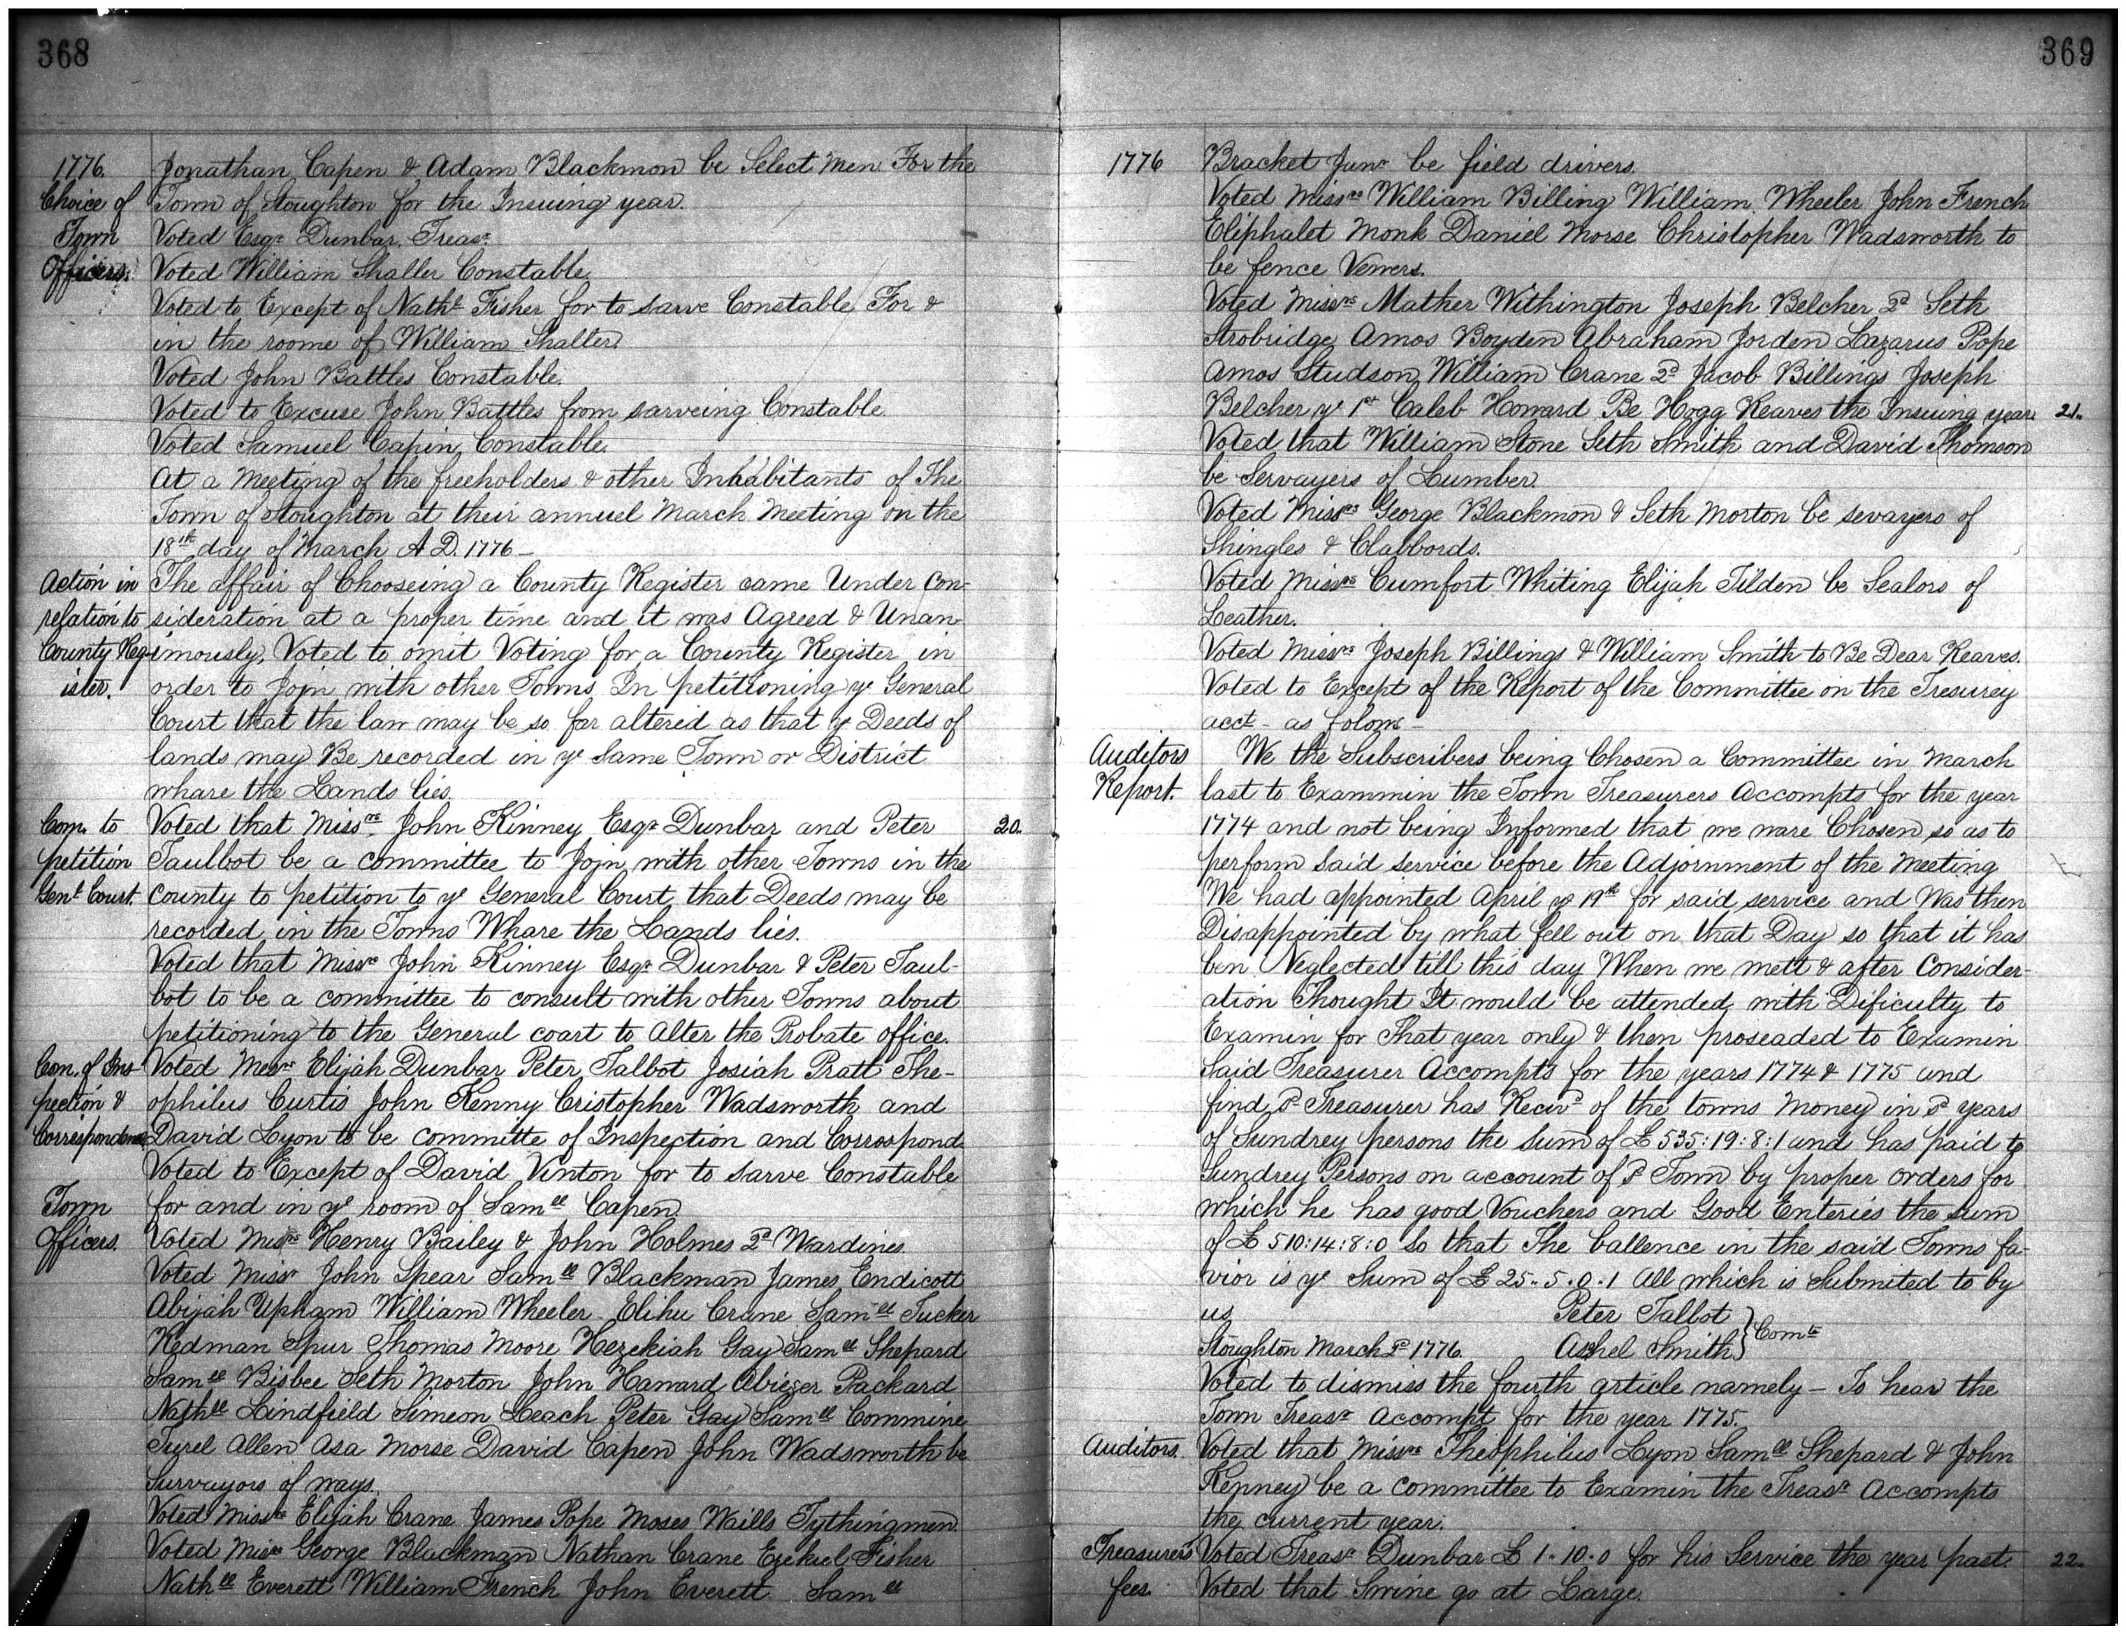 368
1776.
Choice of
Town
Officers.
Jonathan Capen & Adam Blackmon be Select Men For the
Town of Stoughton for the Insuing year.
Voted Esqr Dunbar Treasr
Voted William Shaller Constable.
Voted to Except of Nathl Fisher for to sarve Constable For &
in the roome of William Shaller
Voted John Battles Constable.
Voted to Excuse John Battles from sarveing Constable.
Voted Samuel Capin Constable.
At a Meeting of the freeholders & other Inhabitants of The
Town of Stoughton at their annuel March Meeting on the
18th day of March A D. 1776 —
Action in
relation to
County Reg-
ister.
The affair of Chooseing a County Register came Under Con-
sideration at a proper time and it was Agreed & Unan-
imously, Voted to omit Voting for a County Register in
order to Jojn with other Towns In petitioning ye General
Court that the law may be so far altered as that ye Deeds of
lands may Be recorded in ye Same Town or District
whare the Lands lies.
Com. to
petition
Genl Court.
Voted that Missrs John Kinney Esqr Dunbar and Peter 20.
Taulbot be a committee to Jojn with other Towns in the
county to petition to ye General Court that Deeds may be
recorded in the Towns Whare the Lands lies.
Voted that Missrs John Kinney Esqr Dunbar & Peter Taul-
bot to be a committee to consult with other Towns about
petitioning to the General coart to Alter the Probate office.
Com. of Ins-
pection &
Correspondence
Voted Mesrs Elijah Dunbar Peter Talbot Josiah Pratt The-
ophilus Curtis John Kenny Cristopher Wadsworth and
David Lyon to be committe of Inspection and Corrospond
Voted to Except of David Vinton for to sarve Constable
for and in ye room of Samll Capen
Town
Officers.
Voted Misrs Henry Bailey & John Holmes 2d Wardines
Voted Missr John Spear Samll Blackman James Endicott
Abijah Upham William Wheeler Elihu Crane Samll Tucker
Redman Spur Thomas Moore Hezekiah Gay Samll Shepard
Samll Bisbee Seth Morton John Haward Abiezer Packard
Nathll Lindfield Simeon Leach Peter Gay Samll Commins
Turel Allen Asa Morse David Capen John Wadsworth be
Survayors of ways.
Voted Missrs Elijah Crane James Pope Moses Waills Tythingmen.
Voted Missrs George Blackman Nathan Crane Ezekiel Fisher
Nathll Everett William French John Everett Samll
369
1776
Bracket Junr be field drivers.
Voted Missrs William Billing William Wheeler John French
Eliphalet Monk Daniel Morse Christopher Wadsworth to
be fence Vewers.
Voted Missrs Mather Withington Joseph Belcher 2d Seth
Strobridge Amos Boyden Abraham Jorden Lazarus Pope
Amos Studson William Crane 2d Jacob Billings Joseph
Belcher ye 1st Caleb Howard Be Hogg Reaves the Insuing year. 21.
Voted that William Stone Seth Smith and David Thomson
be Servayers of Lumber
Voted Missrs George Blackmon & Seth Morton be sevayers of
Shingles & Clabbords.
Voted Missrs Cumfort Whiting Elijah Tilden be Sealors of
Leather.
Voted Missrs Joseph Billings & William Smith to Be Dear Reaves.
Voted to Except of the Report of the Committee on the Tresurey
acct - as folows -
Auditors
Report.
We the Subscribers being Chosen a Committee in March
last to Exammin the Town Treasurers Accompts for the year
1774 and not being Informed that we ware Chosen so as to
perform said service before the Adjornment of the Meeting
We had appointed April ye 19th for said service and Was then
Disappointed by what fell out on that Day so that it has
ben Neglected till this day When we mett & after Consider-
ation Thought It would be attended with Dificulty to
Examin for That year only & then proseaded to Examin
Said Treasurer Accompts for the years 1774 & 1775 and
find sd Treasurer has Recivd of the towns Money in sd years
of Sundrey persons the Sum of £ 535:19:8:1 and has paid to
Sundrey Persons on account of sd Town by proper orders for
which he has good Vouchers and Good Enteries the Sum
of £ 510:14:8:0 So that The ballence in the said Towns fa-
vior is ye Sum of £ 25. 5. 0. 1 All which is Submited to by
us Peter Talbot
Stoughton March 2d 1776. Ashel Smith } Comte
Voted to dismiss the fourth article namely - To hear the
Town Treasr Accompt for the year 1775.
Auditors.
Voted that Missrs Theophilus Lyon Samll Shepard & John
Kenney be a committee to Examin the Treasr Accompts
the current year.
Treasurers
fees.
Voted Treasr Dunbar £ 1. 10. 0 for his Service the year past. 22.
Voted that Swine go at Large.